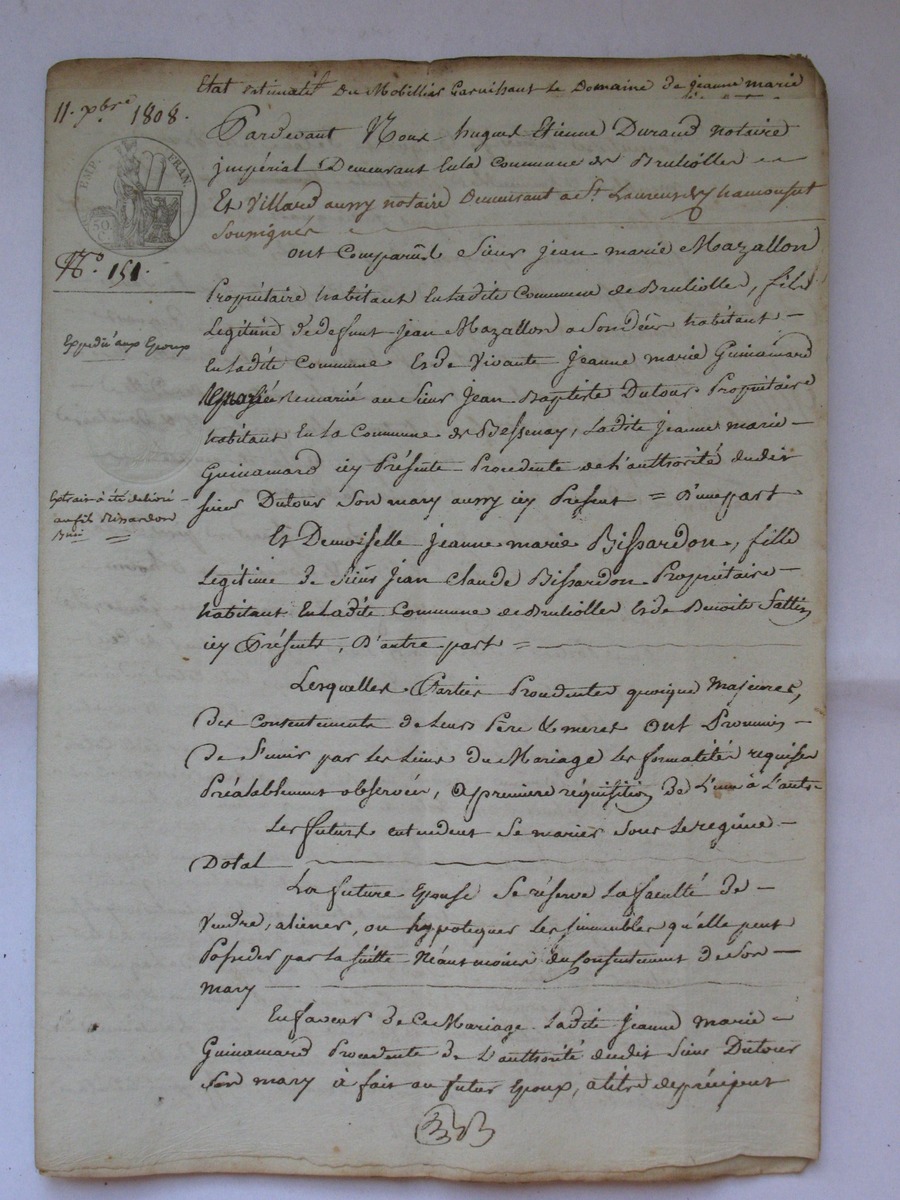 Etat estimatif Du Mobillier Garnissant le Domaine de jeanne marie
11. xbre 1808.
EMP. FRAN
50
No. 151.
Expedié aux Epoux
Extrait à été délivré
au fils Bissardon
Pardevant Nous hugues Etienne Durand notaire
jmpérial Demeurant En la Commune de Brulioller
Et Villard aussy notaire Demeurant a St. Laurent de chamousset
soussignés
ont Comparûs Sieur jean marie Mazallon
Propriétaire habitant En Ladite Commune de Brulioller, fils
Legitime de deffunt jean Mazallon a son décès habitant
En Ladite Commune Et de Vivante jeanne marie Guinamard
Remarié au Sieur jean Baptiste Dutour Propriétaire
habitant En La Commune de Bessenay, Ladite jeanne marie
Guinamard icy Présente Procedente de L'authorité dudit
sieur Dutour Son mary aussy icy Présent = D'une part
Et Demoiselle jeanne marie Bissardon, fille
Legitime de Sieur jean Claude Bissardon Propriétaire
habitant En Ladite Commune de Brulioller Et de Benoite
icy Présents, D'autre part =
Lesquelles Parties Procedentes quoique Majeures,
Des Consentements de Leurs Père & meres Ont Promis
De S'unir par Les Liens du Mariage Les formalités requises
Préalablement observées, a première réquisition de L'une à L'autre
Les futurs entendent Se marier sous Le regime
Dotal
La future Epouse Se réserve La faculté de
Vendre, aliener, ou hypotequer Les immeubles qu'elle peut
Posseder par La suitte Néantmoins du Consentement de Son
mary
En faveur de Ce Mariage Ladite jeanne marie
Guinamard Procedente de L'authorité dudit Sieur Dutour
Son mary à fait au futur Epoux, a titre de préciput